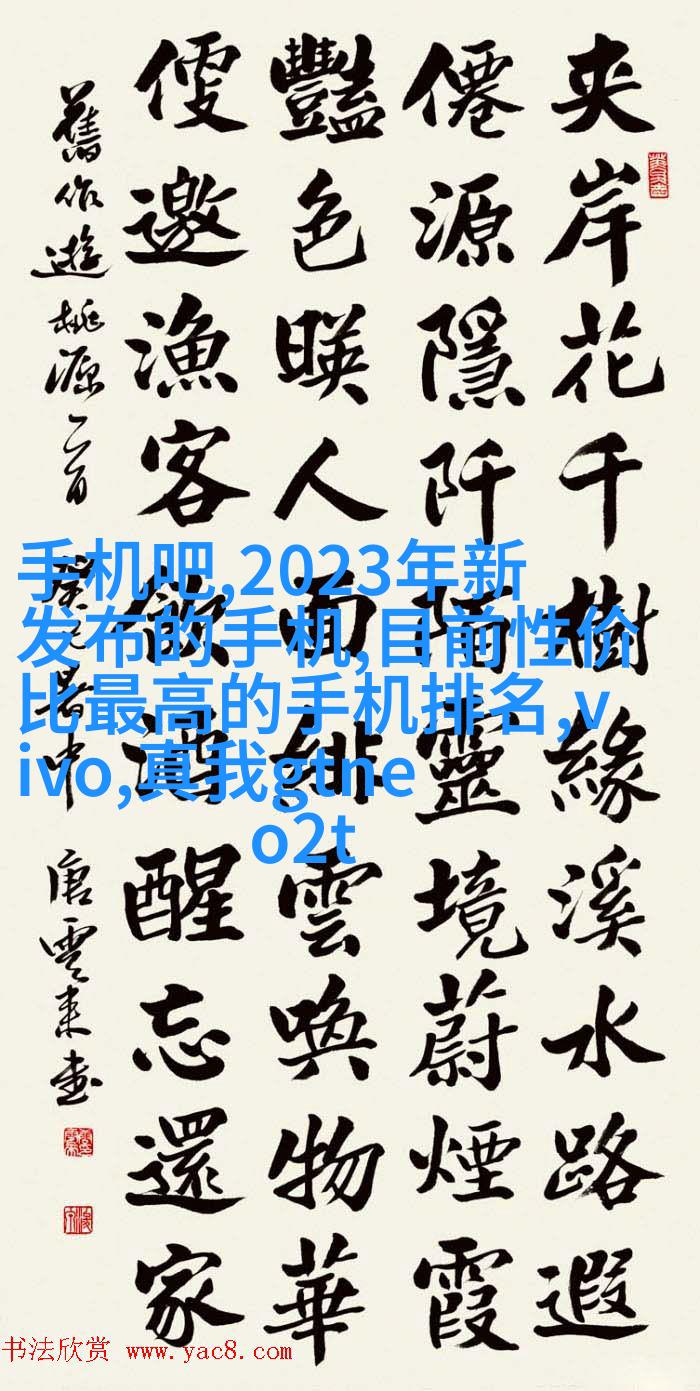 夹岸花千樹緣溪水路遐
僊源隱阡陌靈境蔚煙霞
豔色暎人面緋雲喚物華
便邀漁客醒忘還家
舊作遊桃源二首 癸巳暑中 唐雲來書
手机吧,2023年新
发布的手机,目前性价
比最高的手机排名,v
ivo,真我gtne
o2t
书法欣赏 www.yac8.com